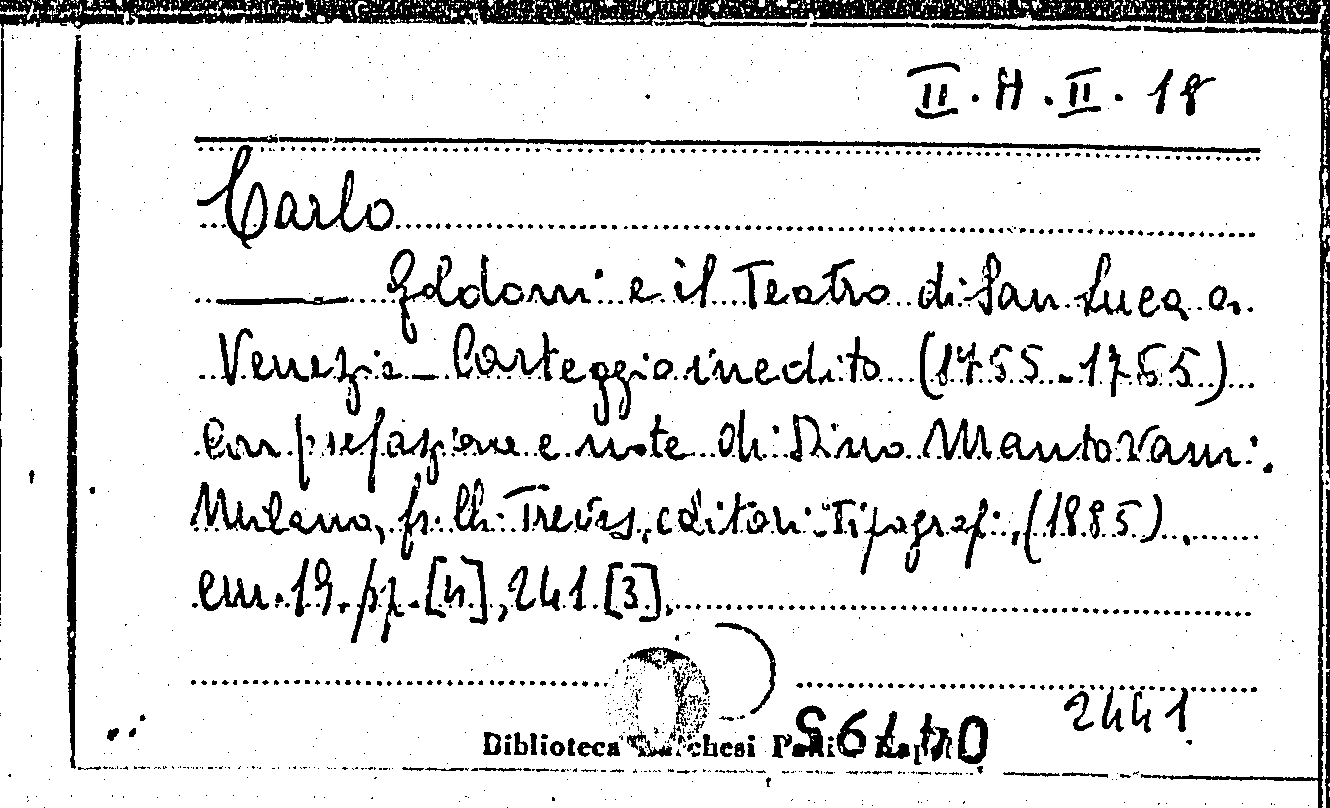 II. A. II. 18
Carlo
——— Goldoni e il Teatro di San Luca a
Venezia - Carteggio inedito (1755-1765)
con prefazione e note di Dino Mantovani.
Milano, f.lli Treves, editori-tipografi, (1885).
cm. 19. pp. [4], 241 [3].
2441
Biblioteca Marchesi